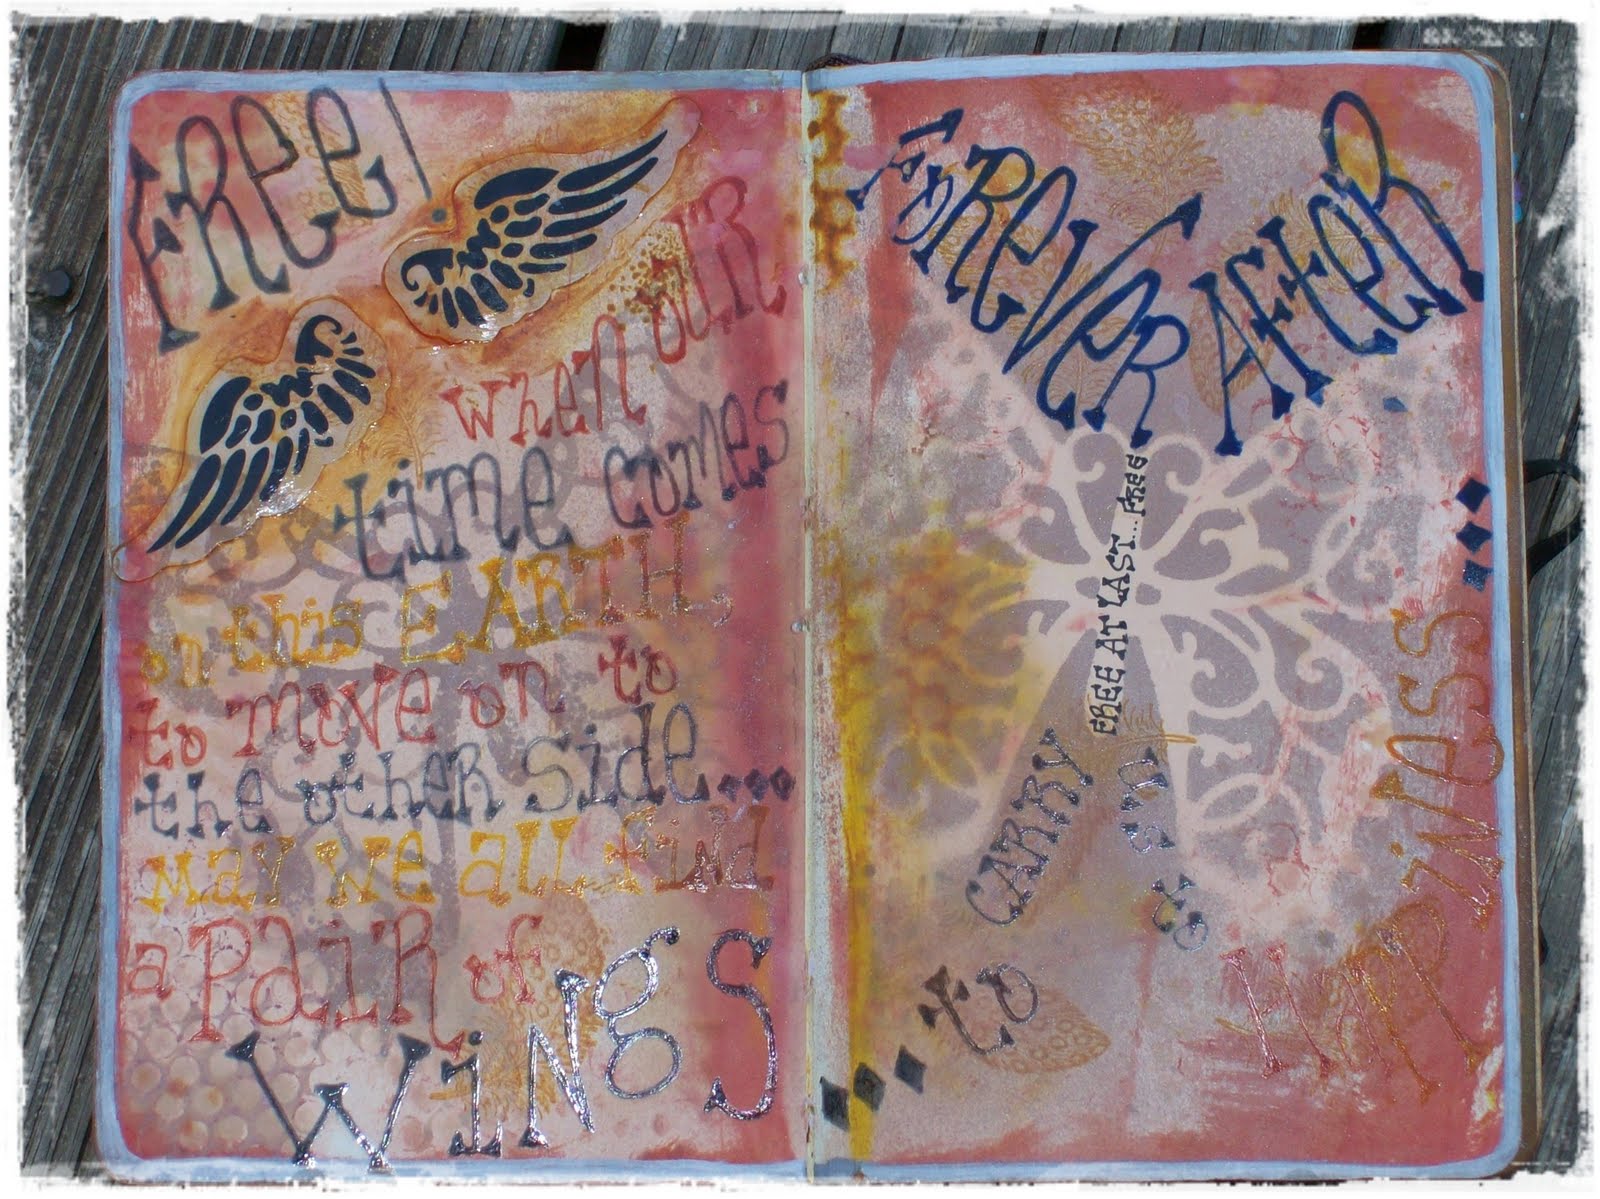 FRee!
when ouR
time comes
on this EARTH,
to move on to
the otheR side...
MAY we all find
a PaiR of
WiNgS
...to
CARRY
us
HAppiNess...
FoReVeR AFteR
FREE AT LAST...FREE